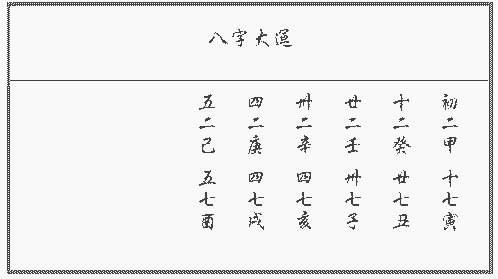 八字大運
初二甲十七寅
十二癸廿七丑
廿二壬卅七子
卅二辛四七亥
四二庚四七戌
五二己五七酉